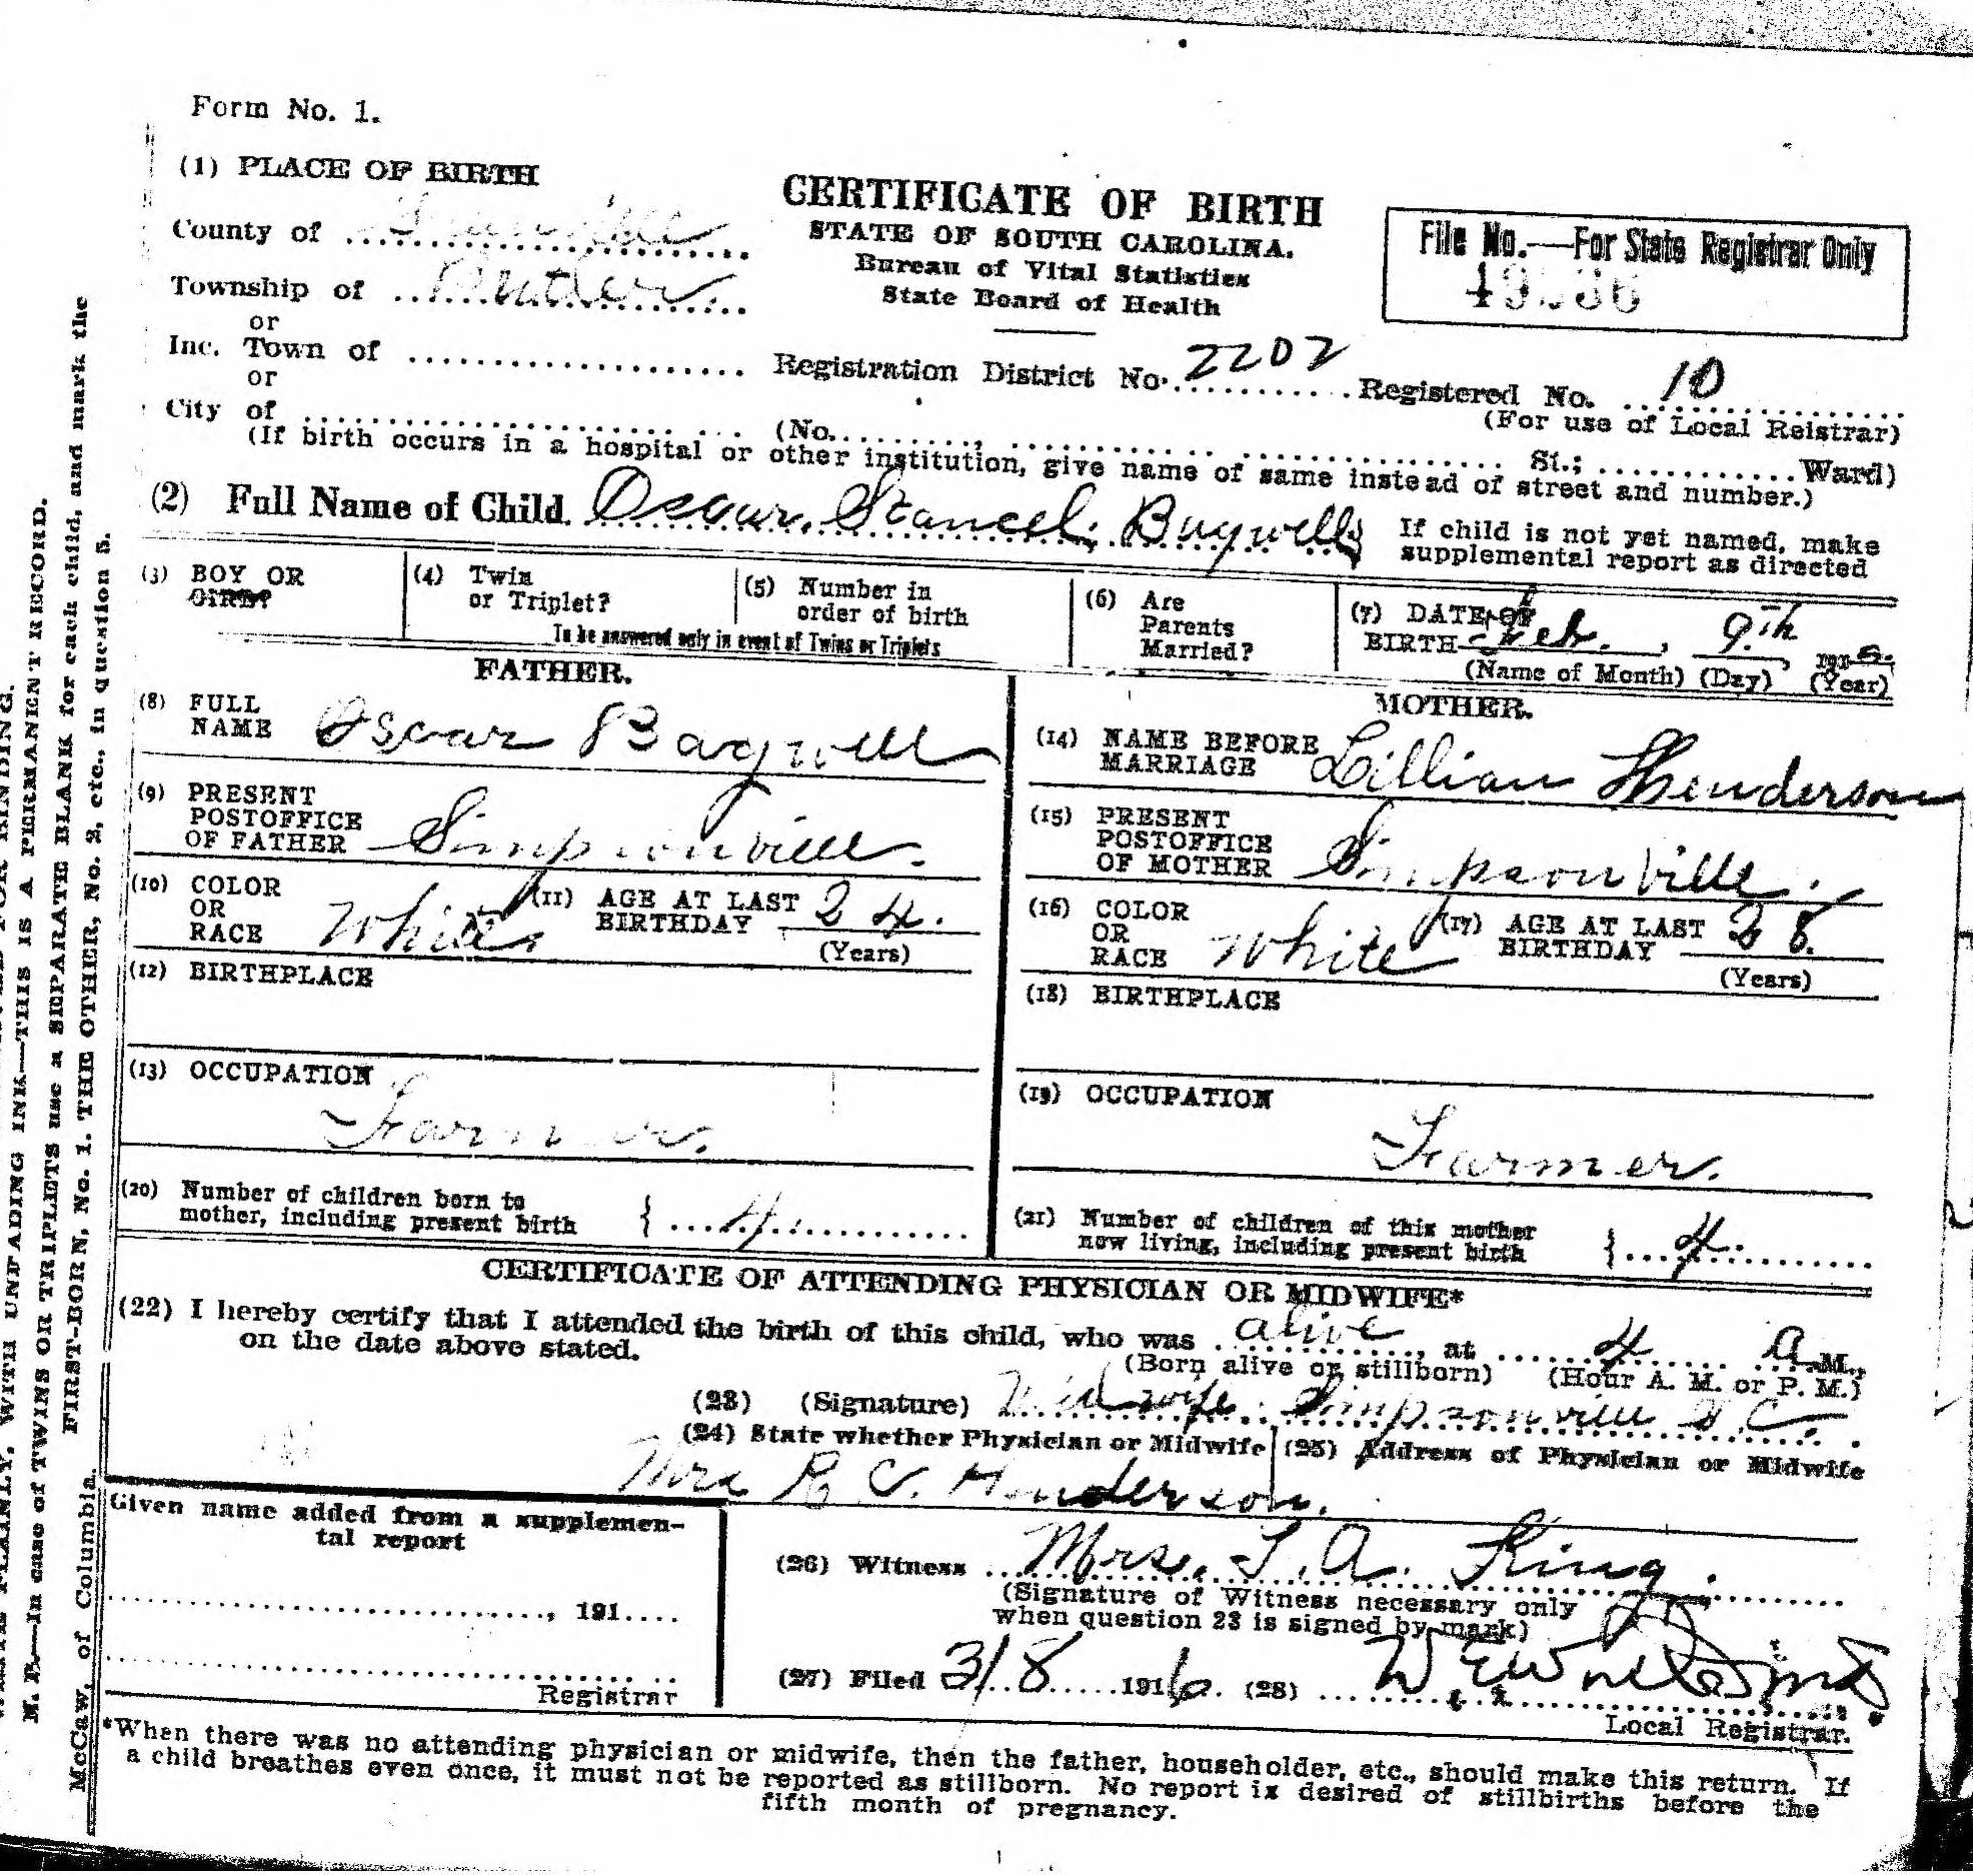 Form No. 1.
(1) PLACE OF BIRTH
CERTIFICATE OF BIRTH
STATE OF SOUTH CAROLINA.
Bureau of Vital Statistics
State Board of Health
File No.—For State Registrar Only
County of Greenville
Township of Butler
or
Inc. Town of
or
Registration District No. 2202 Registered No. 10
(For use of Local Reistrar)
City of (No. St.; Ward)
(If birth occurs in a hospital or other institution, give name of same instead of street and number.)
(2) Full Name of Child Oscar Stancel Bagwell
If child is not yet named, make
supplemental report as directed
(3) BOY OR
GIRL?
(4) Twin
or Triplet?
(5) Number in
order of birth
To be answered only in event of Twins or Triplets
(6) Are
Parents
Married?
(7) DATE OF
BIRTH Feb. , 9th 191
(Name of Month) (Day) (Year)
FATHER.
(8) FULL
NAME Oscar Bagwell
(9) PRESENT
POSTOFFICE
OF FATHER Simpsonville.
(10) COLOR
OR
RACE White
(11) AGE AT LAST
BIRTHDAY 24.
(Years)
(12) BIRTHPLACE
(13) OCCUPATION
Farmer.
MOTHER.
(14) NAME BEFORE
MARRIAGE Lillian Henderson
(15) PRESENT
POSTOFFICE
OF MOTHER Simpsonville.
(16) COLOR
OR
RACE White
(17) AGE AT LAST
BIRTHDAY 28.
(Years)
(18) BIRTHPLACE
(19) OCCUPATION
Farmer.
(20) Number of children born to
mother, including present birth { 4
(21) Number of children of this mother
now living, including present birth { 4
CERTIFICATE OF ATTENDING PHYSICIAN OR MIDWIFE*
(22) I hereby certify that I attended the birth of this child, who was alive, at 4 A.M.,
on the date above stated.
(Born alive or stillborn) (Hour A. M. or P. M.)
(23) (Signature) Midwife Simpsonville S.C.
(24) State whether Physician or Midwife (25) Address of Physician or Midwife
Mrs Henderson.
Given name added from a supplemen-
tal report
, 191
Registrar
(26) Witness Mrs. King.
(Signature of Witness necessary only
when question 23 is signed by mark)
(27) Filed 3/8 1916. (28)
Local Registrar.
*When there was no attending physician or midwife, then the father, householder, etc., should make this return. If
a child breathes even once, it must not be reported as stillborn. No report is desired of stillbirths before the
fifth month of pregnancy.
WITH UNFADING INK—THIS IS A PERMANENT RECORD.
N. B.—In case of TWINS OR TRIPLETS use a SEPARATE BLANK for each child, and mark the
FIRST-BORN, No. 1. THE OTHER, No. 2, etc., in question 5.
McCaw, of Columbia.